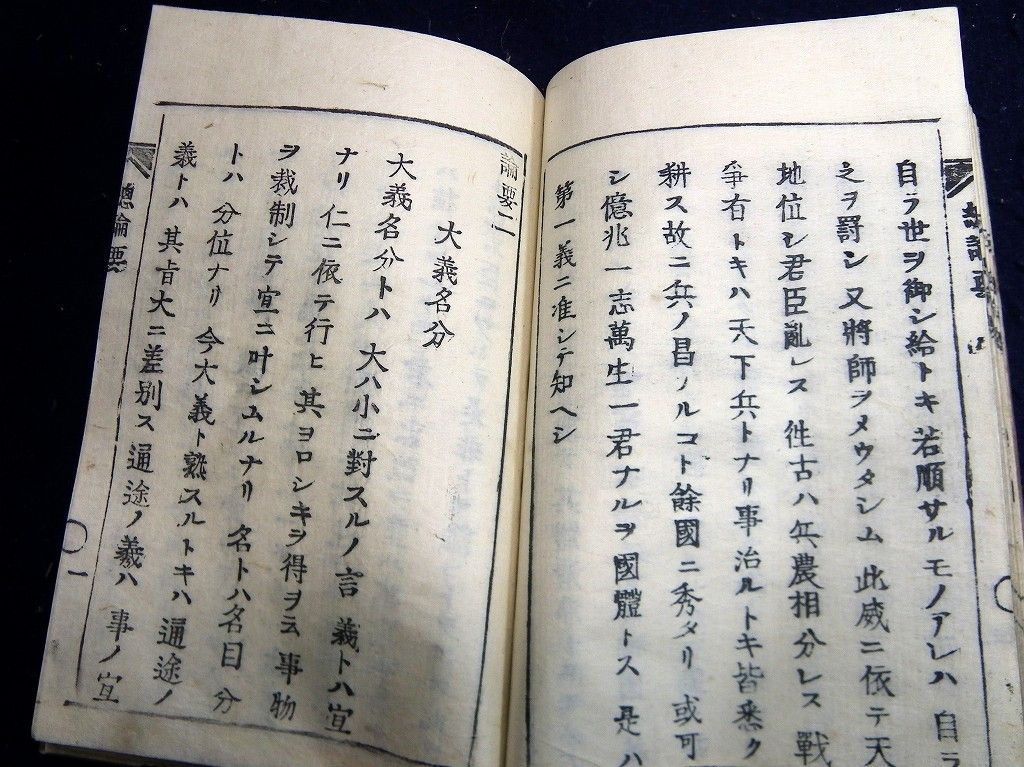 自ラ世ヲ御シ給トキ若順サルモノアレハ 自ラ
之ヲ罸シ 又將師ヲメウタシム 此威ニ依テ天
地位シ君臣亂レス 徃古ハ兵農相分レス 戰
争有トキハ天下兵トナリ事治ルトキ皆悉ク
耕ス故ニ兵ノ昌ノルコト餘國ニ秀タリ 或可
シ億兆一志萬生一君ナルヲ國體トス 是ハ
第一義ニ准シテ知ヘシ
論要二
大義名分
大義名分トハ 大ハ小ニ對スルノ言 義トハ宜
ナリ 仁ニ依テ行ヒ 其ヨロシキヲ得ヲ云 事物
ヲ裁制シテ宜ニ叶シムルナリ 名トハ名目 分
トハ 分位ナリ 今大義ト熟スルトキハ 通途ノ
義トハ 其旨大ニ差别ス 通途ノ義ハ 事ノ宜
總論要
一